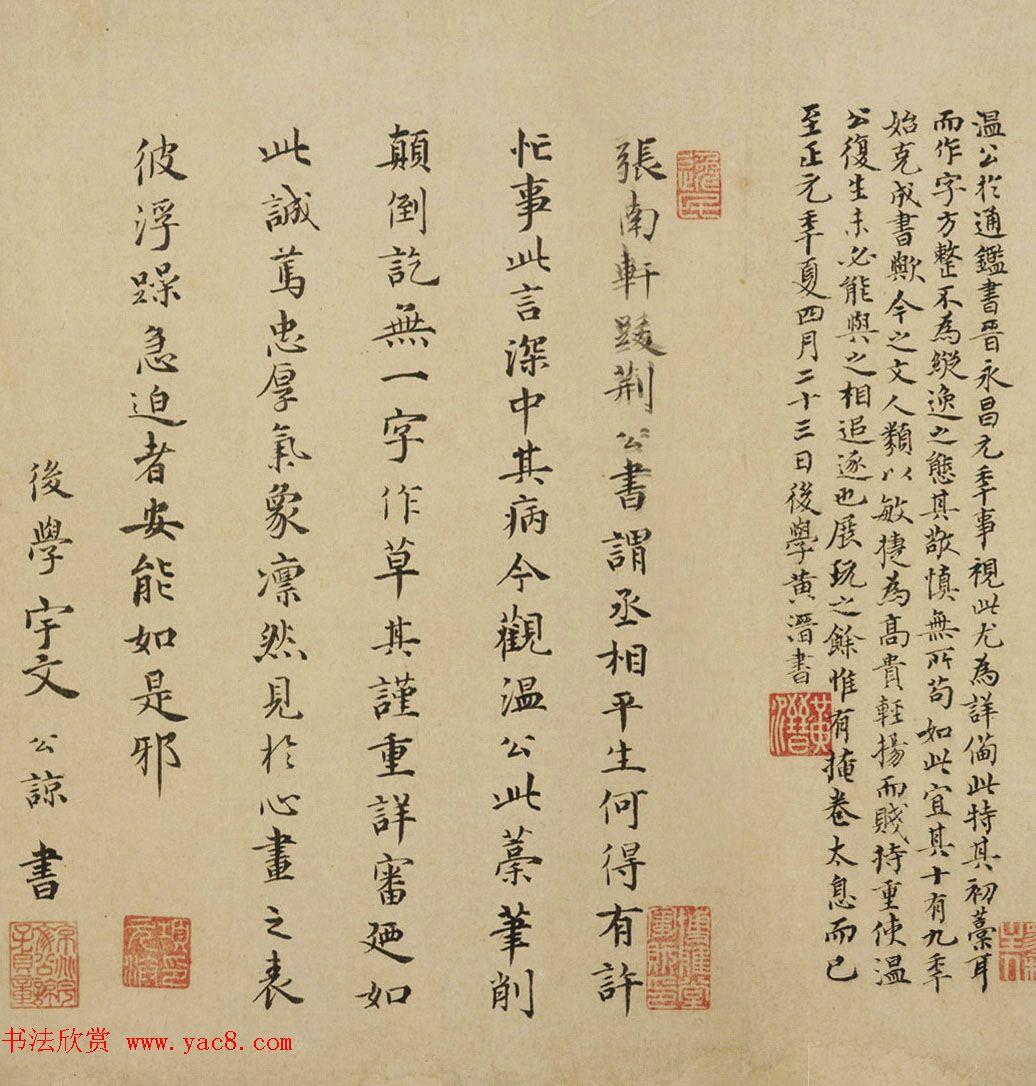 溫公於通鑑書晉永昌元年事視此尤為詳備此特其初藁耳
而作字方整不為縱逸之態其敬慎無所苟如此宜其十有九年
始克成書歟今之文人類以敏捷為高貴輕揚而賤持重使溫
公復生未必能與之相追逐也展玩之餘惟有掩卷太息而已
至正元年夏四月二十三日後學黃溍書
黃溍
張南軒跋荊公書謂丞相平生何得有許
忙事此言深中其病今觀溫公此藁筆削
顛倒訖無一字作草其謹重詳審乃如
此誠篤忠厚氣象凛然見於心畫之表
彼浮躁急迫者安能如是邪
後學宇文公諒書
书法欣赏 www.yac8.com